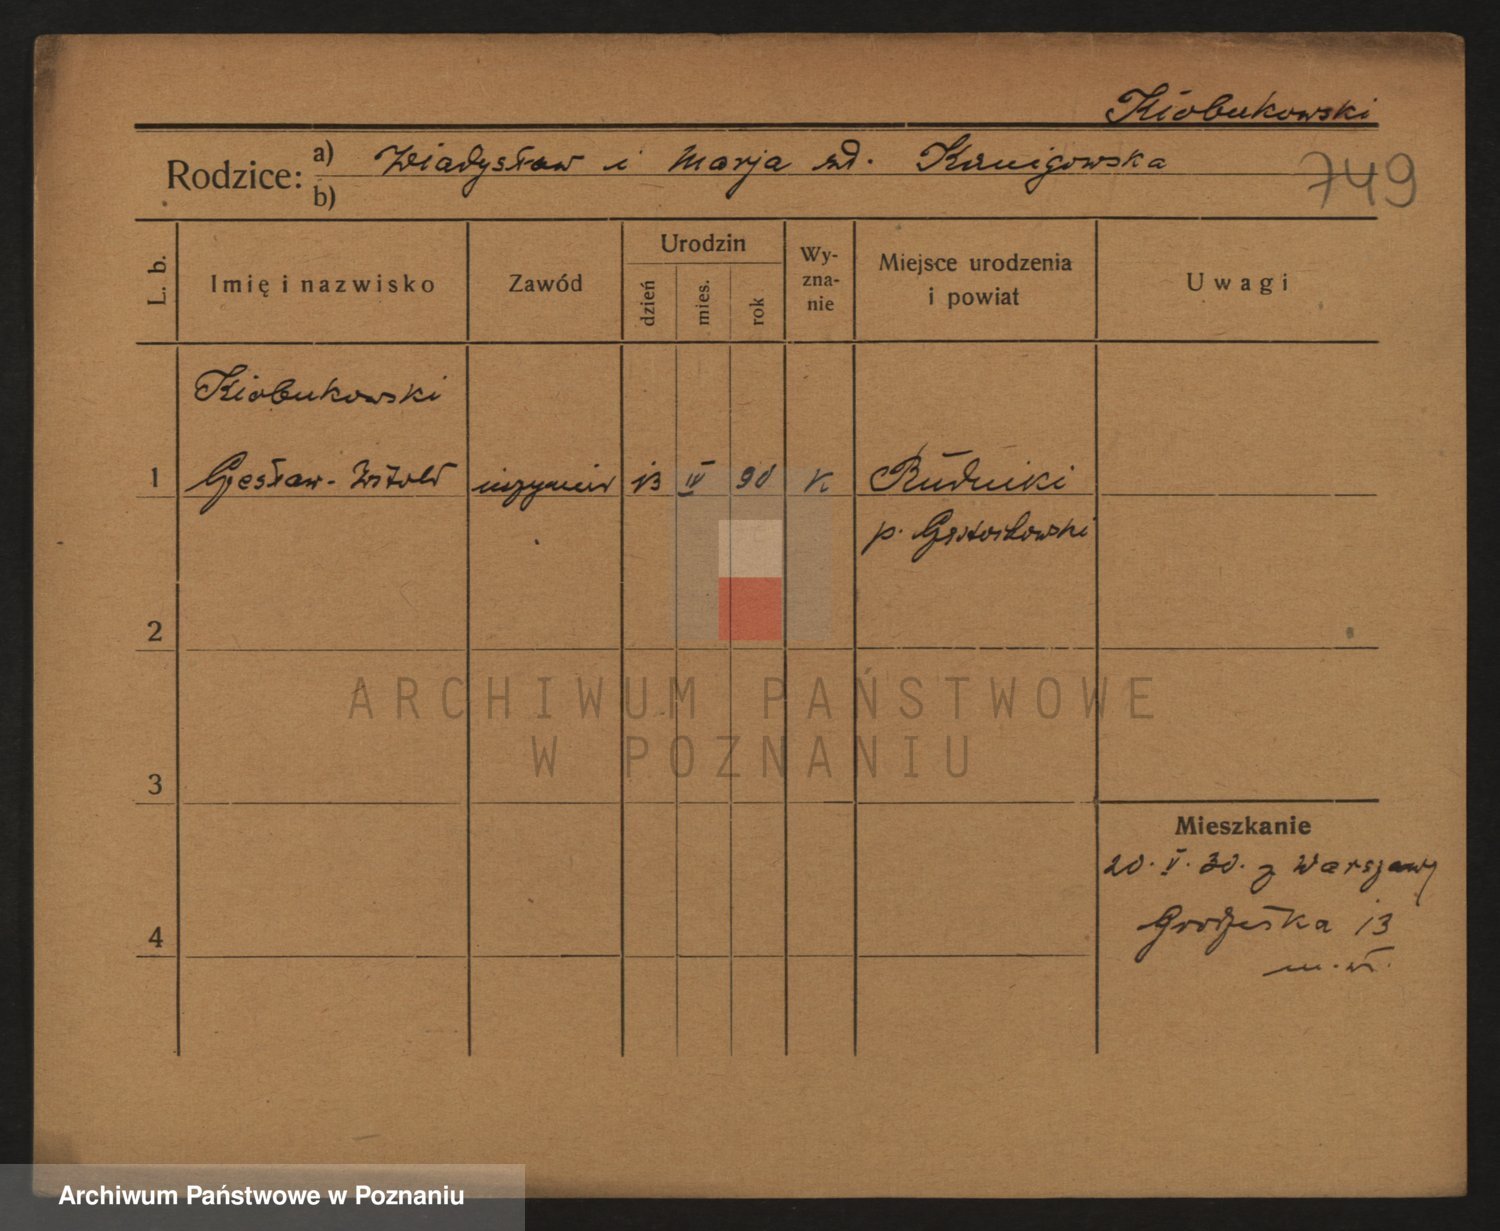 Kłobukowski
Rodzice: a) Władysław i Marja zd. Kanigowska
b)
749
L. b.
Imię i nazwisko
Zawód
Urodzin
dzień
mies.
rok
Wy-
zna-
nie
Miejsce urodzenia
i powiat
Uwagi
Kłobukowski
1 Czesław-Witold inżynier 13 IV 90 K Rudniki
p.
2
3
4
Mieszkanie
20. V. 30. z Warszawy
Grodziska 13
ARCHIWUM PAŃSTWOWE
W POZNANIU
Archiwum Państwowe w Poznaniu